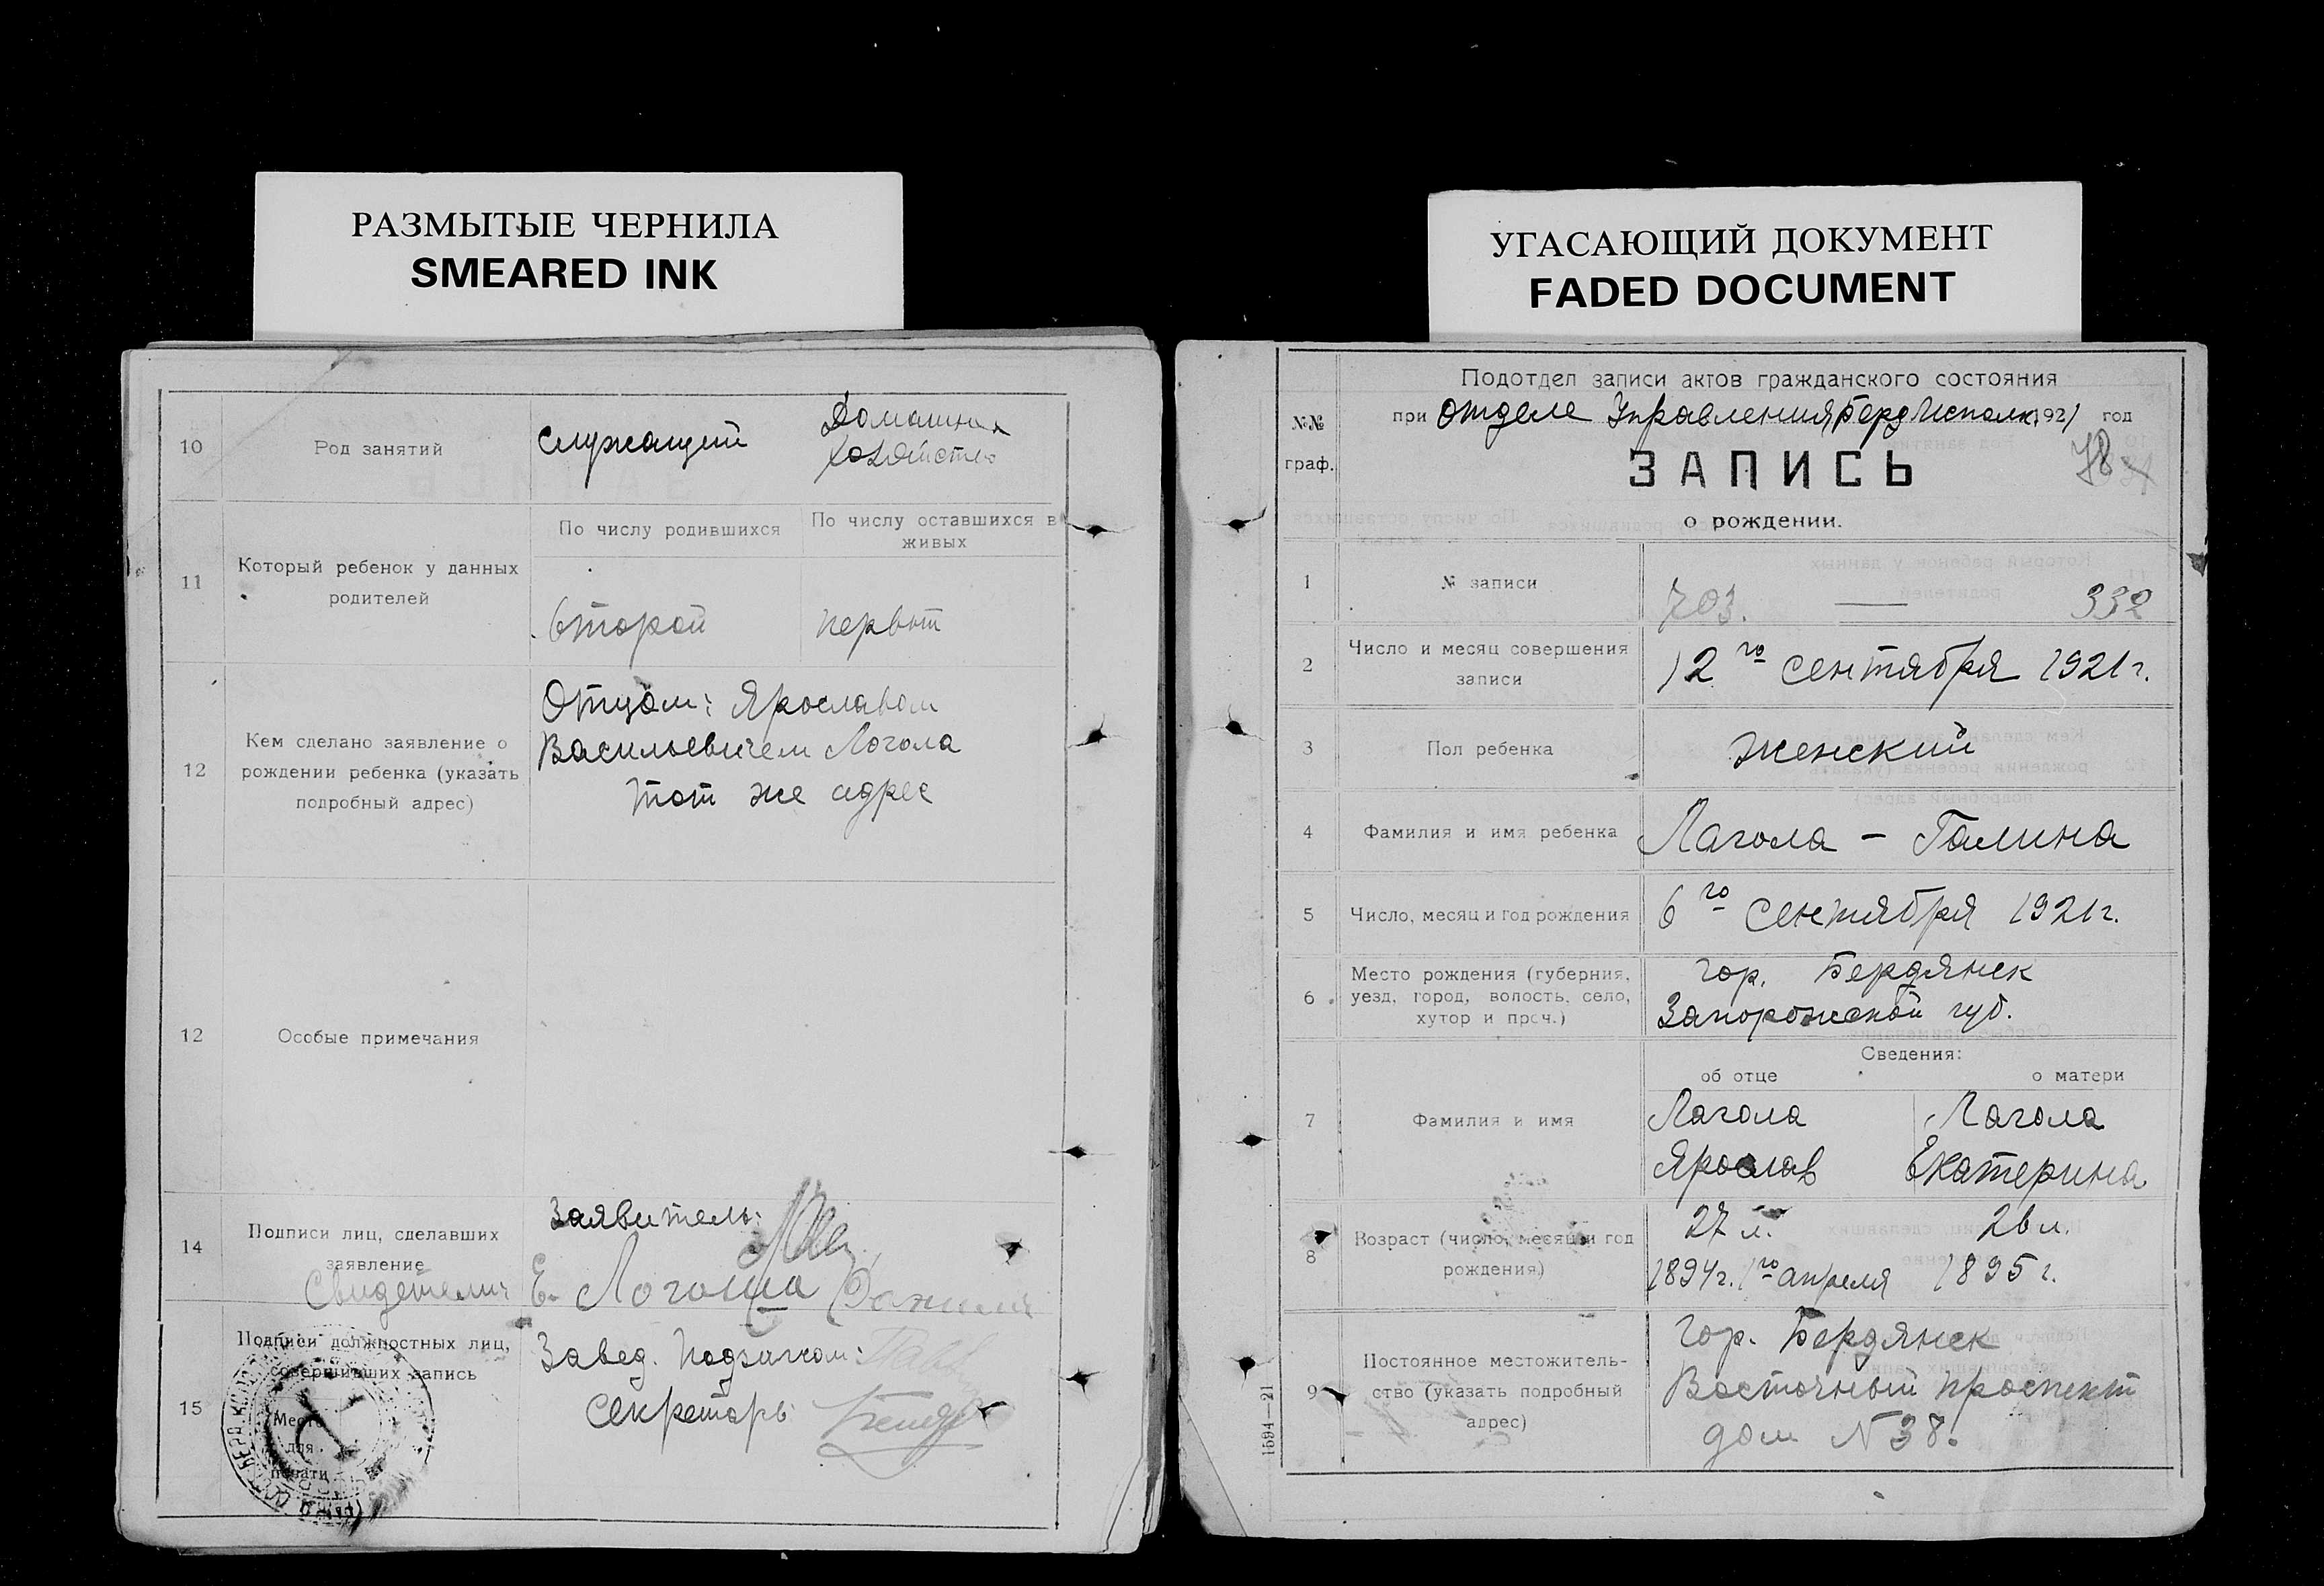 РАЗМЫТЫЕ ЧЕРНИЛА
SMEARED INK
10
Род занятий
служащий
Домашнее
хозяйство
11
Который ребенок у данных
родителей
По числу родившихся
По числу оставшихся в
живых
второй
первый
12
Кем сделано заявление о
рождении ребенка (указать
подробный адрес)
Отцом: Ярославом
Васильевичем Логола
тот же адрес
12
Особые примечания
14
Подписи лиц, сделавших
заявление
Заявитель:
Свидетели: Е.
15
Подписи должностных лиц,
совершивших запись
Место
для
печати
Завед. Подзагсом:
Секретарь
УГАСАЮЩИЙ ДОКУМЕНТ
FADED DOCUMENT
№№
граф.
Подотдел записи актов гражданского состояния
при отделе Управления БердИсполк. 1921 год
ЗАПИСЬ
о рождении.
78
1
№ записи
703. — 332
2
Число и месяц совершения
записи
12го сентября 1921 г.
3
Пол ребенка
Женский
4
Фамилия и имя ребенка
Лагола – Галина
5
Число, месяц и год рождения
6го сентября 1921 г.
6
Место рождения (губерния,
уезд, город, волость, село,
хутор и проч.)
гор. Бердянск
Запорожской губ.
Сведения:
об отце
о матери
7
Фамилия и имя
Лагола
Ярослав
Лагола
Екатерина
8
Возраст (число, месяц и год
рождения)
27 л.
26 л.
1894 г. 1го апреля
1895 г.
9
Постоянное местожитель-
ство (указать подробный
адрес)
гор. Бердянск
Восточный проспект
дом № 38.
1594—21